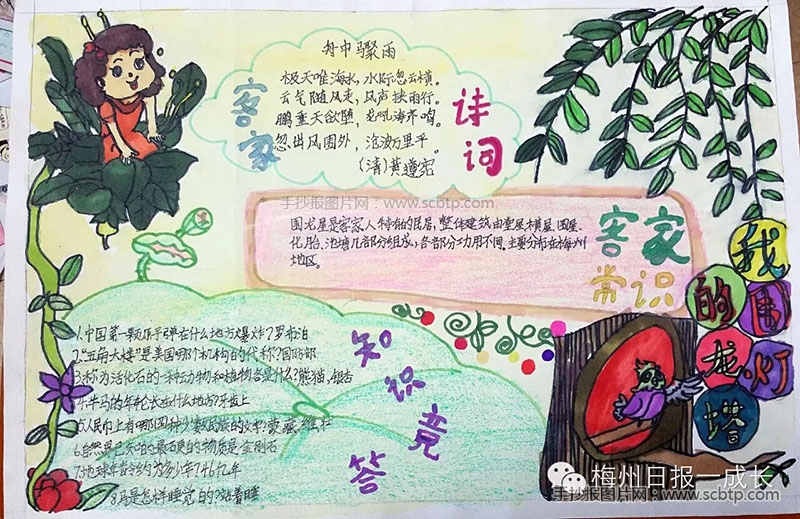 舟中骤雨
极天唯海水，水际忽云横。
云气随风走，风声挟雨行。
鹏垂天欲堕，龙吼海齐鸣。
忽出风围外，沧波万里平。
(清)黄遵宪
客家
诗词
手抄报图片网：www.scbtp.com
围龙屋是客家人特有的民居，整体建筑由堂屋、横屋、围屋、
化胎、池塘几部分组成，各部分功用不同。主要分布在梅州
地区。
客家
常识
我
的围
龙灯
塔
1.中国第一颗原子弹在什么地方爆炸？罗布泊
2."五角大楼"是美国哪个机构的代称？国防部
3.称为活化石的一种动物和植物各是什么？熊猫、银杏
4.牛马的年轮长在什么地方？牙齿上
5.人民币上有哪四种少数民族的文字？蒙 藏 维 壮
6.自然界已知的最石更的物质是金刚石
7.地球年龄约为多少年？46亿年
8.马是怎样睡觉的？站着睡
知识竞答
梅州日报—成长
手抄报图片网：www.scbtp.com